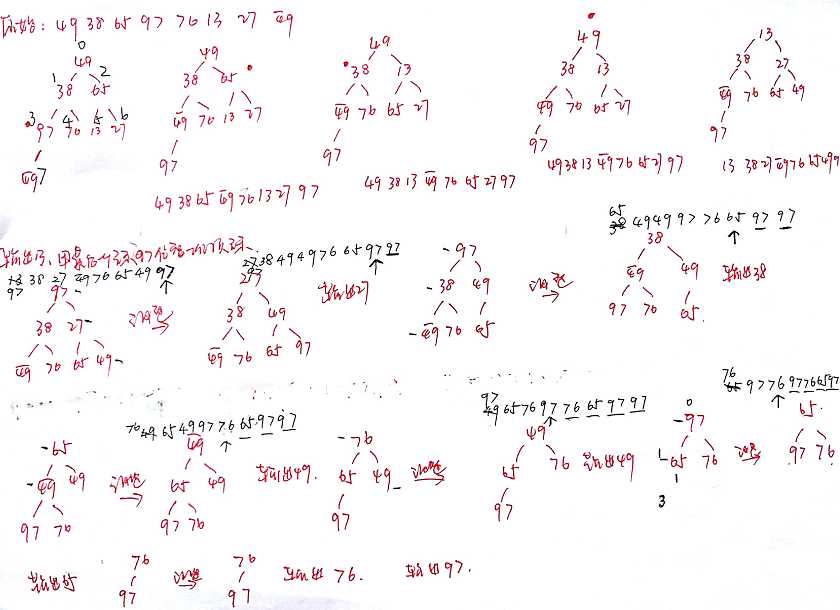 原始: 49 38 65 97 76 13 27 4̅9̅
0
49
1 38 2 65
3 97 4 76 5 13 6 27
4̅9̅ 7
49
38 65
4̅9̅ 76 13 27
97
49 38 65 4̅9̅ 76 13 27 97
49
38 13
4̅9̅ 76 65 27
97
49 38 13 4̅9̅ 76 65 27 97
49
38 13
4̅9̅ 76 65 27
97
49 38 13 4̅9̅ 76 65 27 97
13
38 27
4̅9̅ 76 65 49
97
13 38 27 4̅9̅ 76 65 49 9
输出13, 用最后一个元素97
13 38 27 49 76 65 49 97
97
97
38 27
4̅9̅ 76 65 49
调整
27 38 49 49 76 65 97 97
97
27
38 49
4̅9̅ 76 65 97
输出27
97
38 49
4̅9̅ 76 65
调整
65
38 49 49 97 76 65 97 97
38
4̅9̅ 49
97 76 65
输出38
65
4̅9̅ 49
97 76
调整
76
49 65 49 97 76 65 97 97
4̅9̅
65 49
97 76
输出49.
76
65 49
97
调整
97
49 65 76 97 76 65 97 97
49
65 76
97
输出49
0
97
1 65 76
1
3
调整
76
65 97 76 97 76 65 97
65.
97 76
输出65
76
97
调整
76
97
输出76.
输出97.